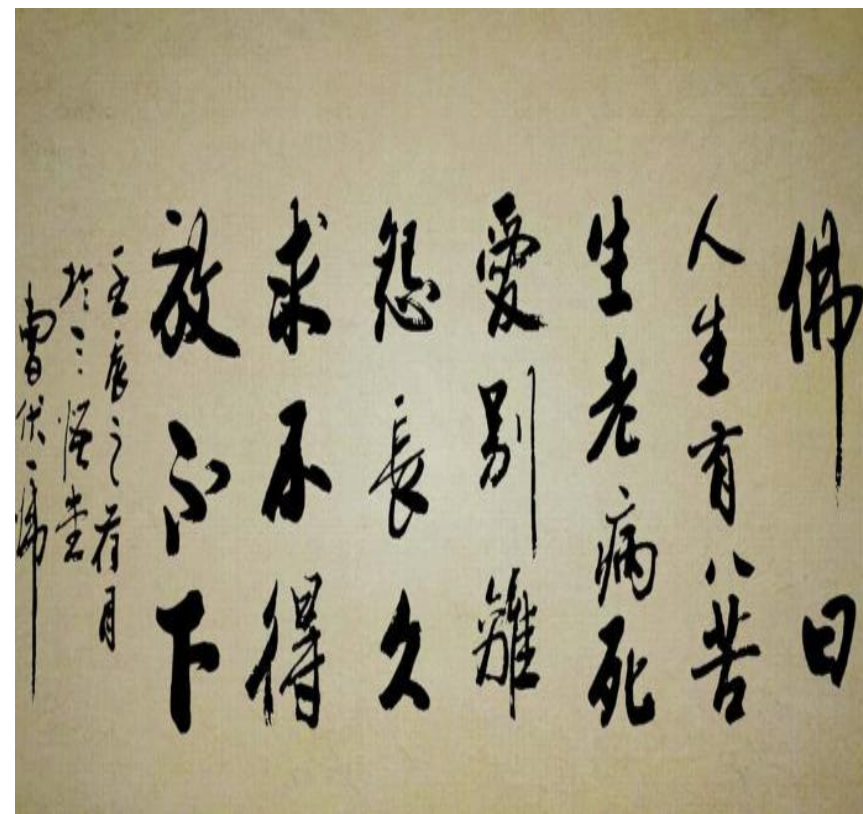 佛曰
人生有八苦
生老病死
愛別離
怨長久
求不得
放不下
壬辰之荷月
於三悟堂
曹伏一郎